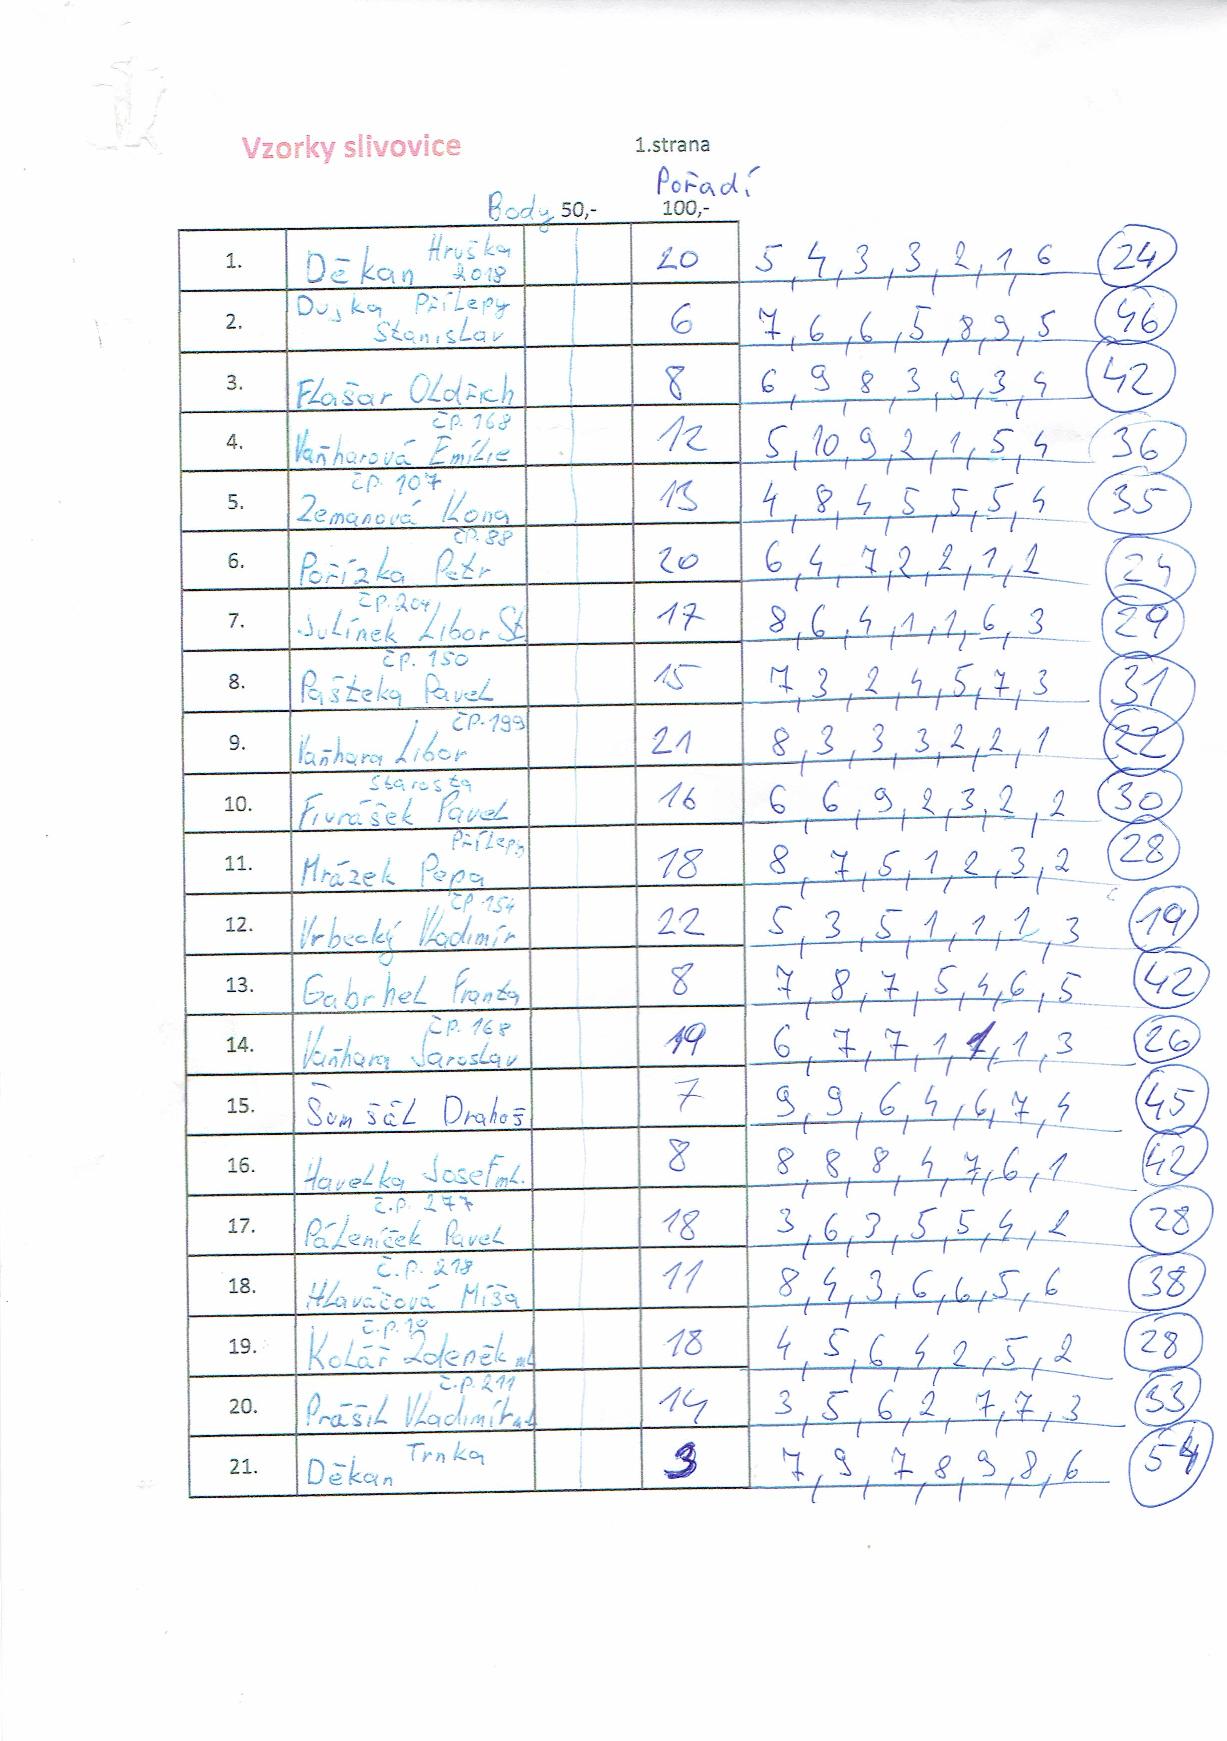 Vzorky slivovice 1.strana
Pořadí
Body 50,- 100,-
1. Děkan Hruška 2018 20 5, 4, 3, 3, 2, 1, 6 24
2. Dujka Přílepy Stanislav 6 7, 6, 6, 5, 8, 9, 5 46
3. Flašar Oldřich 8 6, 9, 8, 3, 9, 3, 4 42
4. čp. 168 Vaňharová Emílie 12 5, 10, 9, 2, 1, 5, 4 36
5. čp. 107 Zemanová Ilona 13 4, 8, 4, 5, 5, 5, 4 35
6. čp. 88 Pořízka Petr 20 6, 4, 7, 2, 2, 1, 2 24
7. čp. 204 Julínek Libor St 17 8, 6, 4, 1, 1, 6, 3 29
8. čp. 150 Pašteka Pavel 15 7, 3, 2, 4, 5, 7, 3 31
9. čp. 199 Vaňhara Libor 21 8, 3, 3, 3, 2, 2, 1 22
10. Starosta Fivrášek Pavel 16 6, 6, 9, 2, 3, 2, 2 30
11. Přílepy Mrázek Pepa 18 8, 7, 5, 1, 2, 3, 2 28
12. čp 154 Vrbecký Vladimír 22 5, 3, 5, 1, 1, 1, 3 19
13. Gabrhel Franta 8 7, 8, 7, 5, 4, 6, 5 42
14. čp. 168 Vaňhara Jaroslav 19 6, 7, 7, 1, 1, 1, 3 26
15. Šumšál Drahoš 7 9, 9, 6, 4, 6, 7, 4 45
16. Havelka Josef ml. 8 8, 8, 8, 4, 7, 6, 1 42
17. č.p. 277 Páleníček Pavel 18 3, 6, 3, 5, 5, 4, 2 28
18. č.p. 218 Hlaváčová Míša 11 8, 4, 3, 6, 6, 5, 6 38
19. č.p. 19 Kolář Zdeněk ml 18 4, 5, 6, 4, 2, 5, 2 28
20. č.p. 211 Prášil Vladimír ml 14 3, 5, 6, 2, 7, 7, 3 33
21. Děkan Trnka 3 7, 9, 7, 8, 9, 8, 6 54